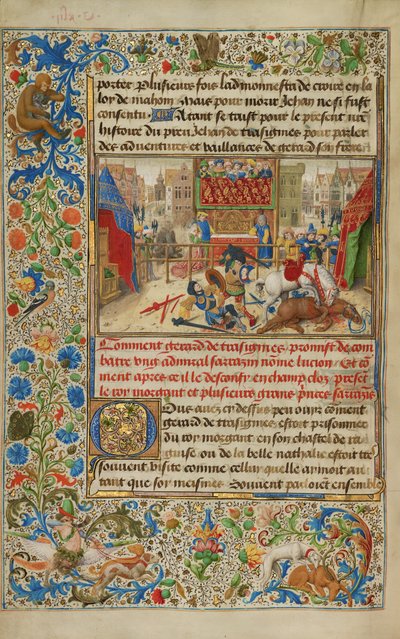 porter Plusieurs fois ladmonnesta de croire en la
loy de mahom Mais pour morir Jehan ne si fust
consentu Atant se taist pour le present nre
histoire du preu Jehan de trasignies pour parler
des adventures et vaillances de gerard son frere
Comment gerard de trasignies promist de com
batre ung admiral sarrazin nomme lucion Et co
ment apres ce il le desconfy en champ clos present
le roy morgant et plusieurs grans princes sarrazins
Ous avez cy dessus peu ouyr coment
gerard de trasignies estoit prisonnier
du roy morgant en son chastel de ra
guise ou de la belle nathalie estoit tres
souvent visite comme cellui quelle aimoit au
tant que soy meismes Souvent parloient ensemble